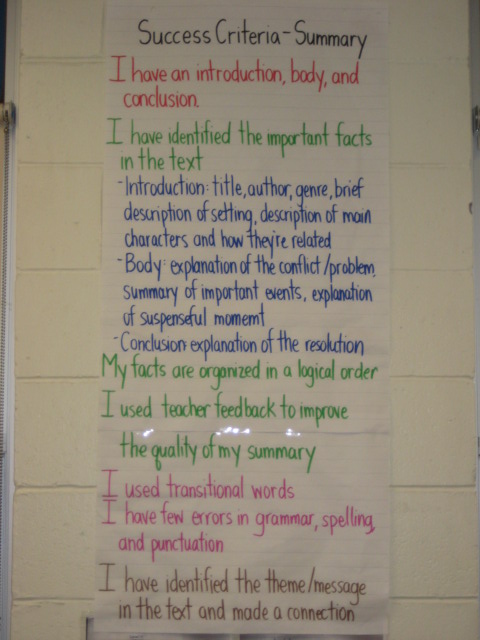 Success Criteria-Summary
I have an introduction, body, and
conclusion.
I have identified the important facts
in the text
-Introduction: title, author, genre, brief
description of setting, description of main
characters and how they're related
-Body: explanation of the conflict/problem,
summary of important events, explanation
of suspenseful momemt
-Conclusion explanation of the resolution
My facts are organized in a logical order
I used teacher feedback to improve
the quality of my summary
I used transitional words
I have few errors in grammar, spelling,
and punctuation
I have identified the theme/message
in the text and made a connection